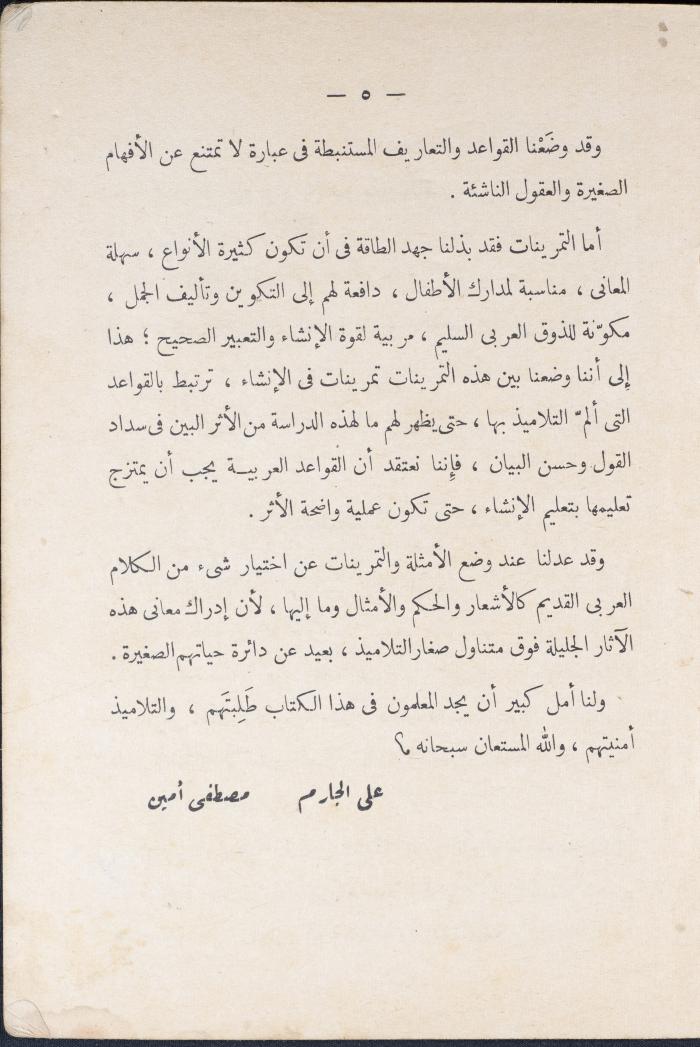 — ٥ —
وقد وضَعْنا القواعد والتعاريف المستنبطة فى عبارة لا تمتنع عن الأفهام
الصغيرة والعقول الناشئة .
أما التمرينات فقد بذلنا جهد الطاقة فى أن تكون كثيرة الأنواع ، سهلة
المعانى ، مناسبة لمدارك الأطفال ، دافعة لهم إلى التكوين وتأليف الجمل ،
مكوّنة للذوق العربى السليم ، مربية لقوة الإنشاء والتعبير الصحيح ؛ هذا
إلى أننا وضعنا بين هذه التمرينات تمرينات فى الإنشاء ، ترتبط بالقواعد
التى ألمّ التلاميذ بها ، حتى يظهر لهم ما لهذه الدراسة من الأثر البين فى سداد
القول وحسن البيان ، فإننا نعتقد أن القواعد العربيــة يجب أن يمتزج
تعليمها بتعليم الإنشاء ، حتى تكون عملية واضحة الأثر .
وقد عدلنا عند وضع الأمثلة والتمرينات عن اختيار شىء من الكلام
العربى القديم كالأشعار والحكم والأمثال وما إليها ، لأن إدراك معانى هذه
الآثار الجليلة فوق متناول صغار التلاميذ ، بعيد عن دائرة حياتهم الصغيرة .
ولنا أمل كبير أن يجد المعلمون فى هذا الكتاب طَلِبتَهم ، والتلاميذ
أمنيتهم ، والله المستعان سبحانه ؟
على الجارم مصطفى أمين